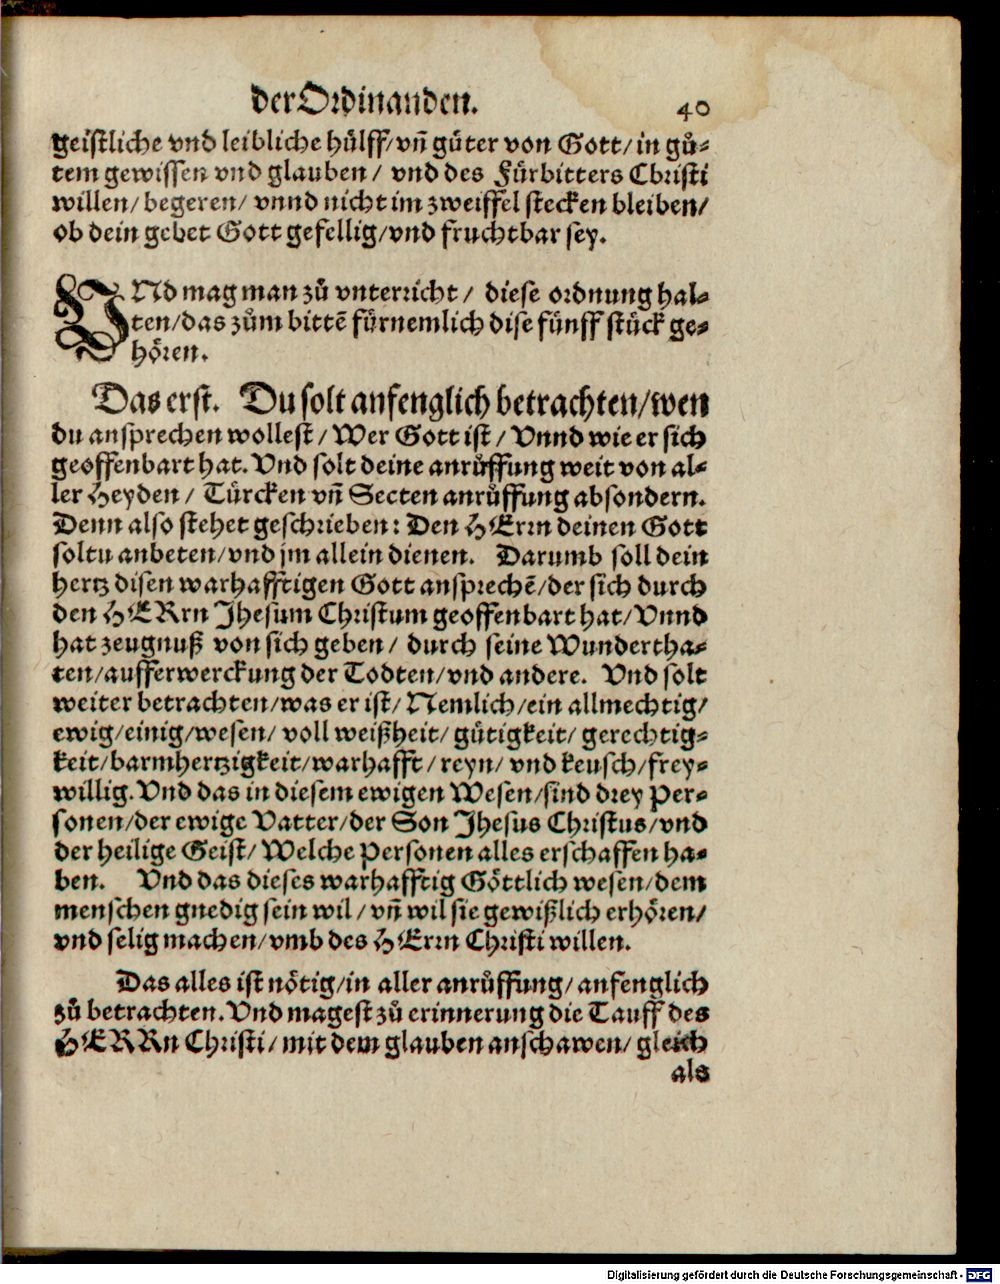 der Ordinanden. 40
geistliche vnd leibliche hülff/vñ güter von Gott/in gů-
tem gewissen vnd glauben/ vnd des Fürbitters Christi
willen/ begeren/ vnnd nicht im zweiffel stecken bleiben/
ob dein gebet Gott gefellig/vnd fruchtbar sey.
VNd mag man zů vnterricht/ diese ordnung hal-
ten/das zům bittẽ fürnemlich dise fünff stück ge-
hören.
Das erst. Du solt anfenglich betrachten/wen
du ansprechen wollest/Wer Gott ist/Vnnd wie er sich
geoffenbart hat. Vnd solt deine anrůffung weit von al-
ler Heyden/ Türcken vñ Secten anrůffung absondern.
Denn also stehet geschrieben: Den HErrn deinen Gott
soltu anbeten/vnd jm allein dienen. Darumb soll dein
hertz disen warhafftigen Gott ansprechẽ/der sich durch
den HERrn Jhesum Christum geoffenbart hat/Vnnd
hat zeugnuß von sich geben/ durch seine Wundertha-
ten/aufferwerckung der Todten/vnd andere. Vnd solt
weiter betrachten/was er ist/Nemlich/ein allmechtig/
ewig/einig/wesen/ voll weißheit/ gütigkeit/ gerechtig-
keit/barmhertzigkeit/warhafft/reyn/ vnd keusch/frey-
willig. Vnd das in diesem ewigen Wesen/sind drey Per-
sonen/der ewige Vatter/der Son Jhesus Christus/vnd
der heilige Geist/Welche Personen alles erschaffen ha-
ben. Vnd das dieses warhafftig Göttlich wesen/dem
menschen gnedig sein wil/vñ wil sie gewißlich erhören/
vnd selig machen/vmb des HErrn Christi willen.
Das alles ist nötig/in aller anrůffung/anfenglich
zů betrachten. Vnd magest zů erinnerung die Tauff des
HERRn Christi/mit dem glauben anschawen/ gleich
als
Digitalisierung gefördert durch die Deutsche Forschungsgemeinschaft - DFG